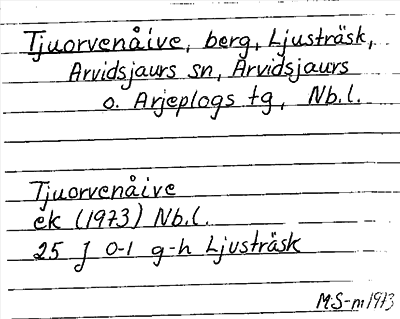 Tjuorvenåive, berg, Ljusträsk,
Arvidsjaurs sn, Arvidsjaurs
o. Arjeplogs tg, Nb.l.
Tjuorvenåive
ek (1973) Nb.l.
25 J 0-1 g-h Ljusträsk
M:S-m 1973